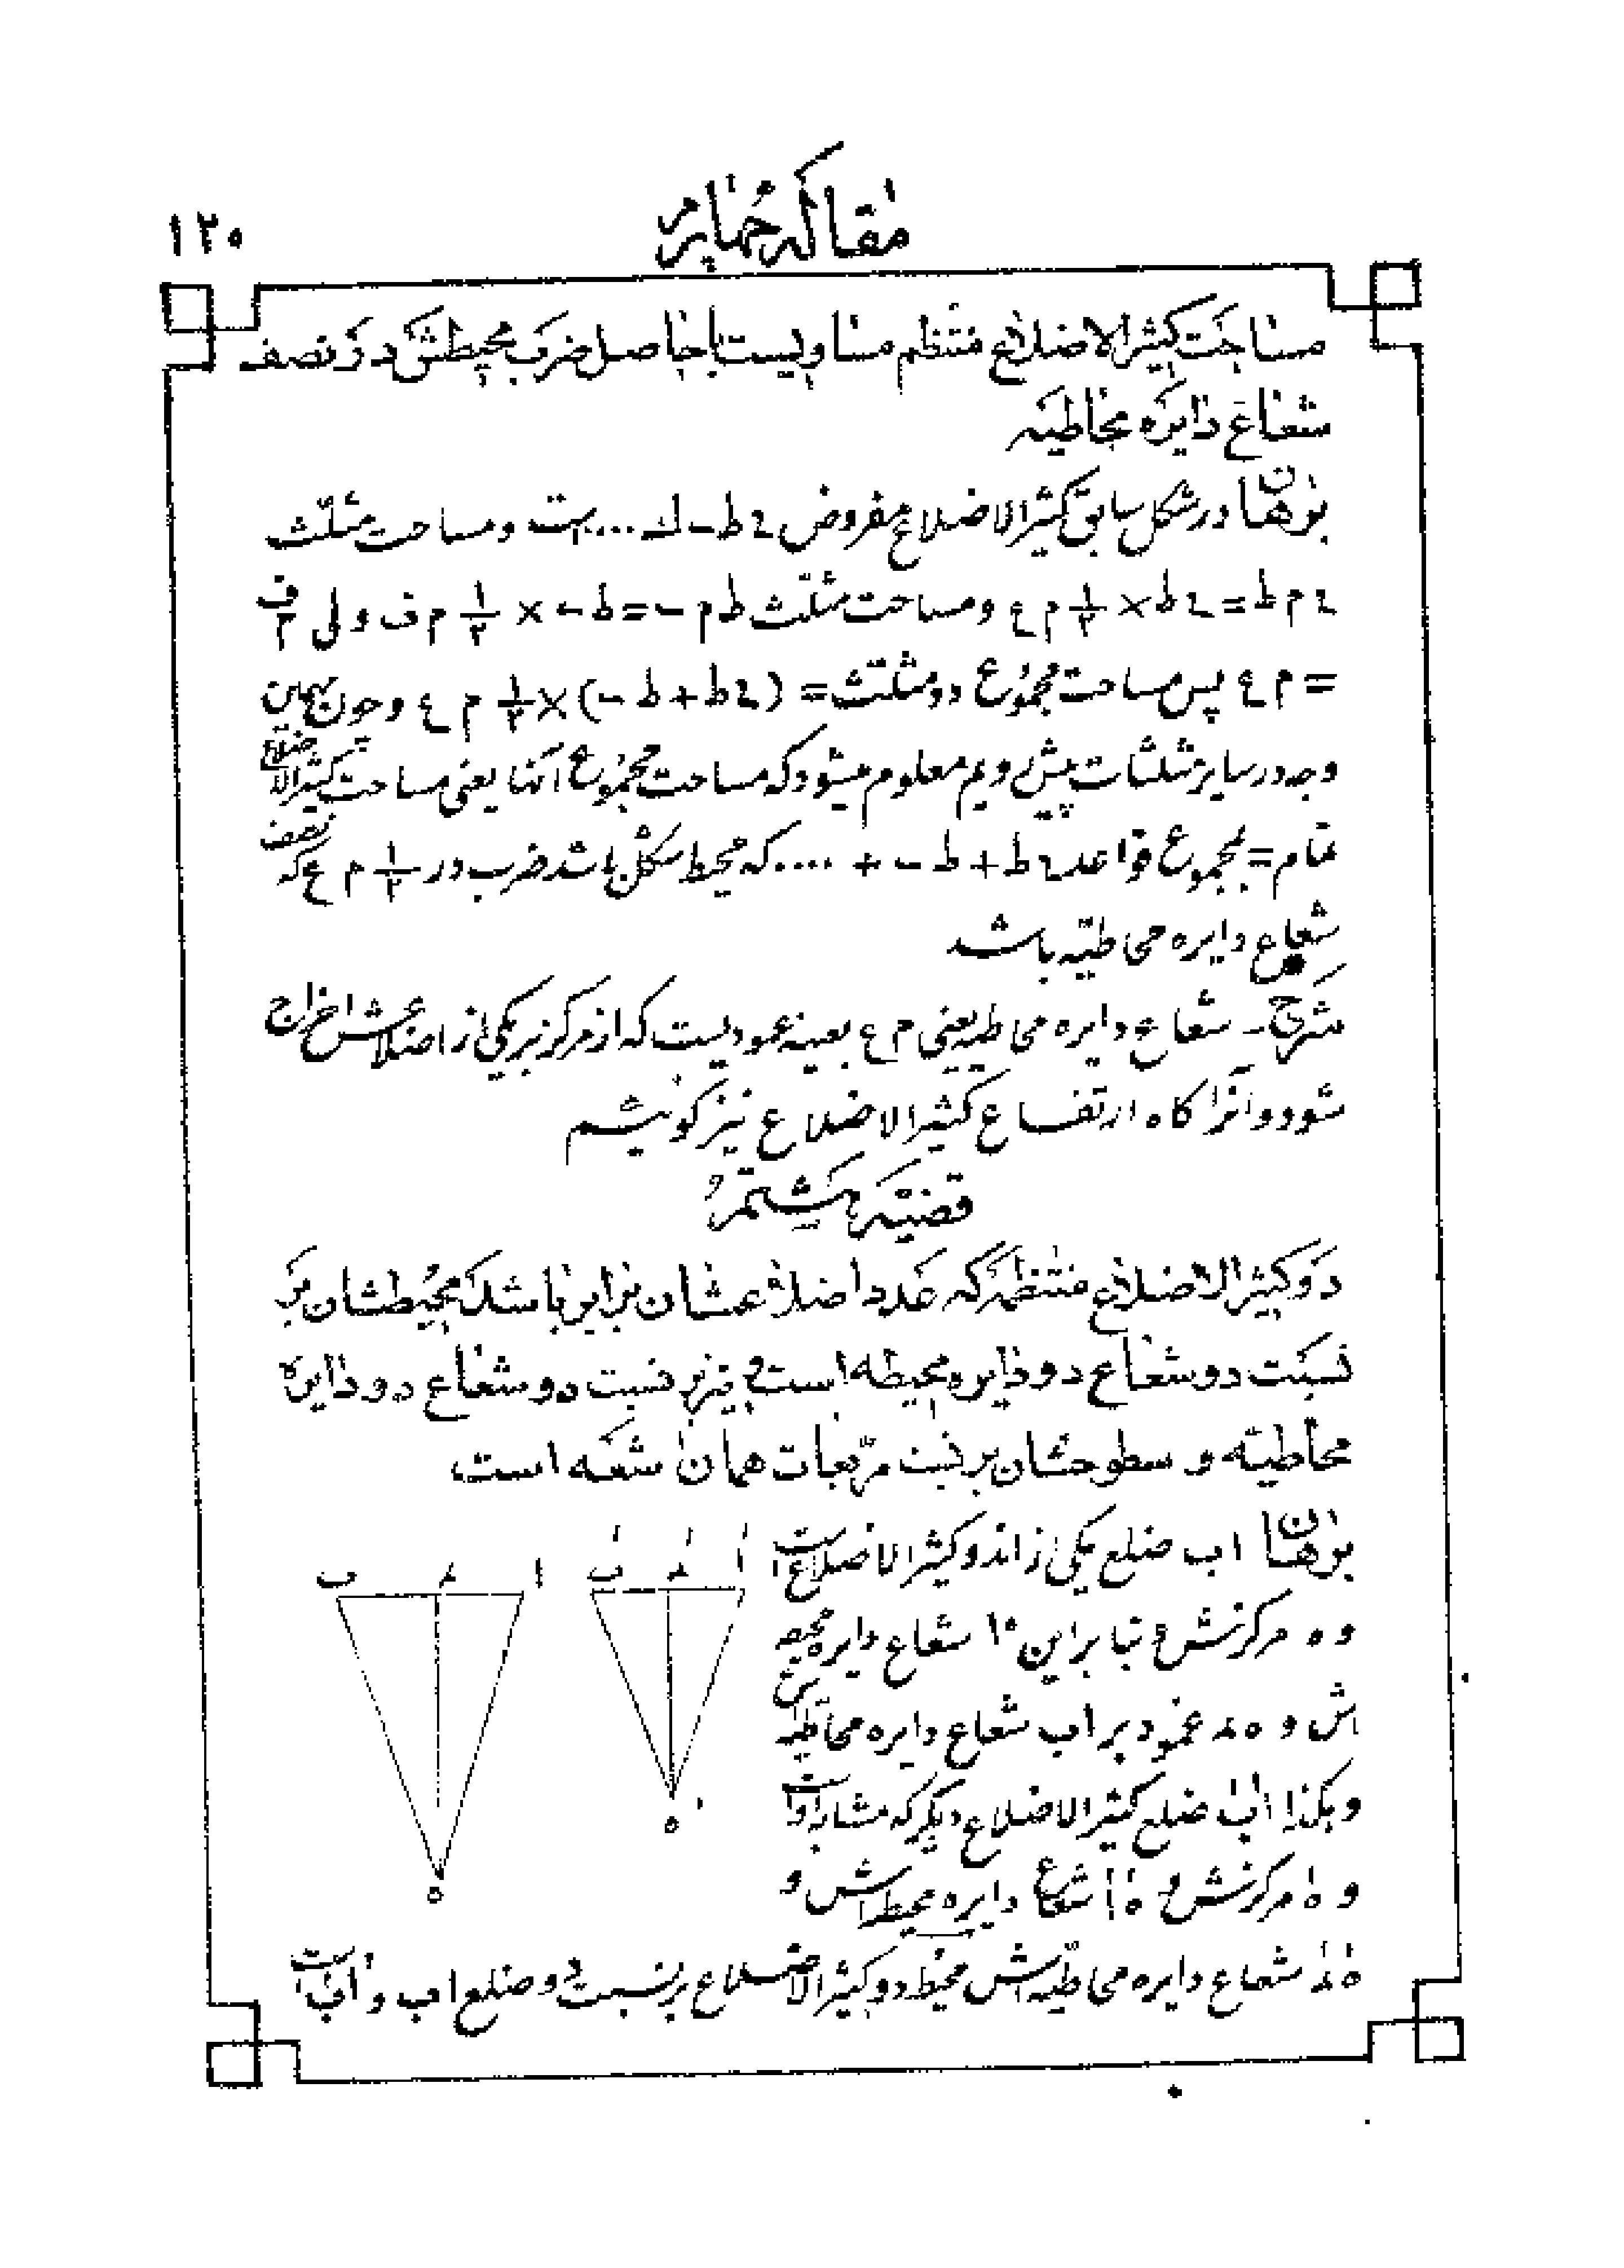 مقاله چهارم
۱۲۰
مساحت کثیرالاضلاع منتظم مساویست با حاصل ضرب محیطش در نصف
شعاع دایره محاطیه
برهان در شکل سابق کثیرالاضلاع مفروض ع ط ـ ... بت و مساحت مثلث
ع م ط = ع ط × ۱/۲ م ع و مساحت مثلث ط م ـ = ط ـ × ۱/۲ م ف ولی م ف
= م ع پس مساحت مجموع دو مثلث = (ع ط + ط ـ) × ۱/۲ م ع و چون بهمین
وجه در سایر مثلثات پیش رویم معلوم میشود که مساحت مجموع آنها یعنی مساحت کثیرالاضلاع
تمام = مجموع قواعد ع ط + ط ـ + .... که محیط شکل باشد ضرب در ۱/۲ م ع که نصف
شعاع دایره محاطیّه باشد
شرح ـ شعاع دایره محاطیه یعنی م ع بعینه عمودیست که از مرکز بر یکی از اضلاعش اخراج
شود و آنرا کاه ارتفاع کثیرالاضلاع نیز کوئیم
قضیه هشتم
دو کثیرالاضلاع منتظم که عدد اضلاعشان برابر باشد محیطشان بر
نسبت دو شعاع دو دایره محیطه است و نیز بر نسبت دو شعاع دو دایره
محاطیه و سطوحشان بر نسبت مربعات همان شعه است
برهان اب ضلع یکی از اندو کثیرالاضلاع است
و ه مرکزش و بنابراین ه ا شعاع دایره محیطه
اش و ه د عمود بر اب شعاع دایره محاطیه
و هکذا اَبَ ضلع کثیرالاضلاع دیکر که مشابه اوست
و هَ مرکزش و هَ اَ شعاع دایره محیطه اش و
هَ دَ شعاع دایره محاطیّه اش محیط دو کثیرالاضلاع بر نسبت دو ضلع اب و اَبَ است
ب د ا
بَ دَ اَ
ه
هَ